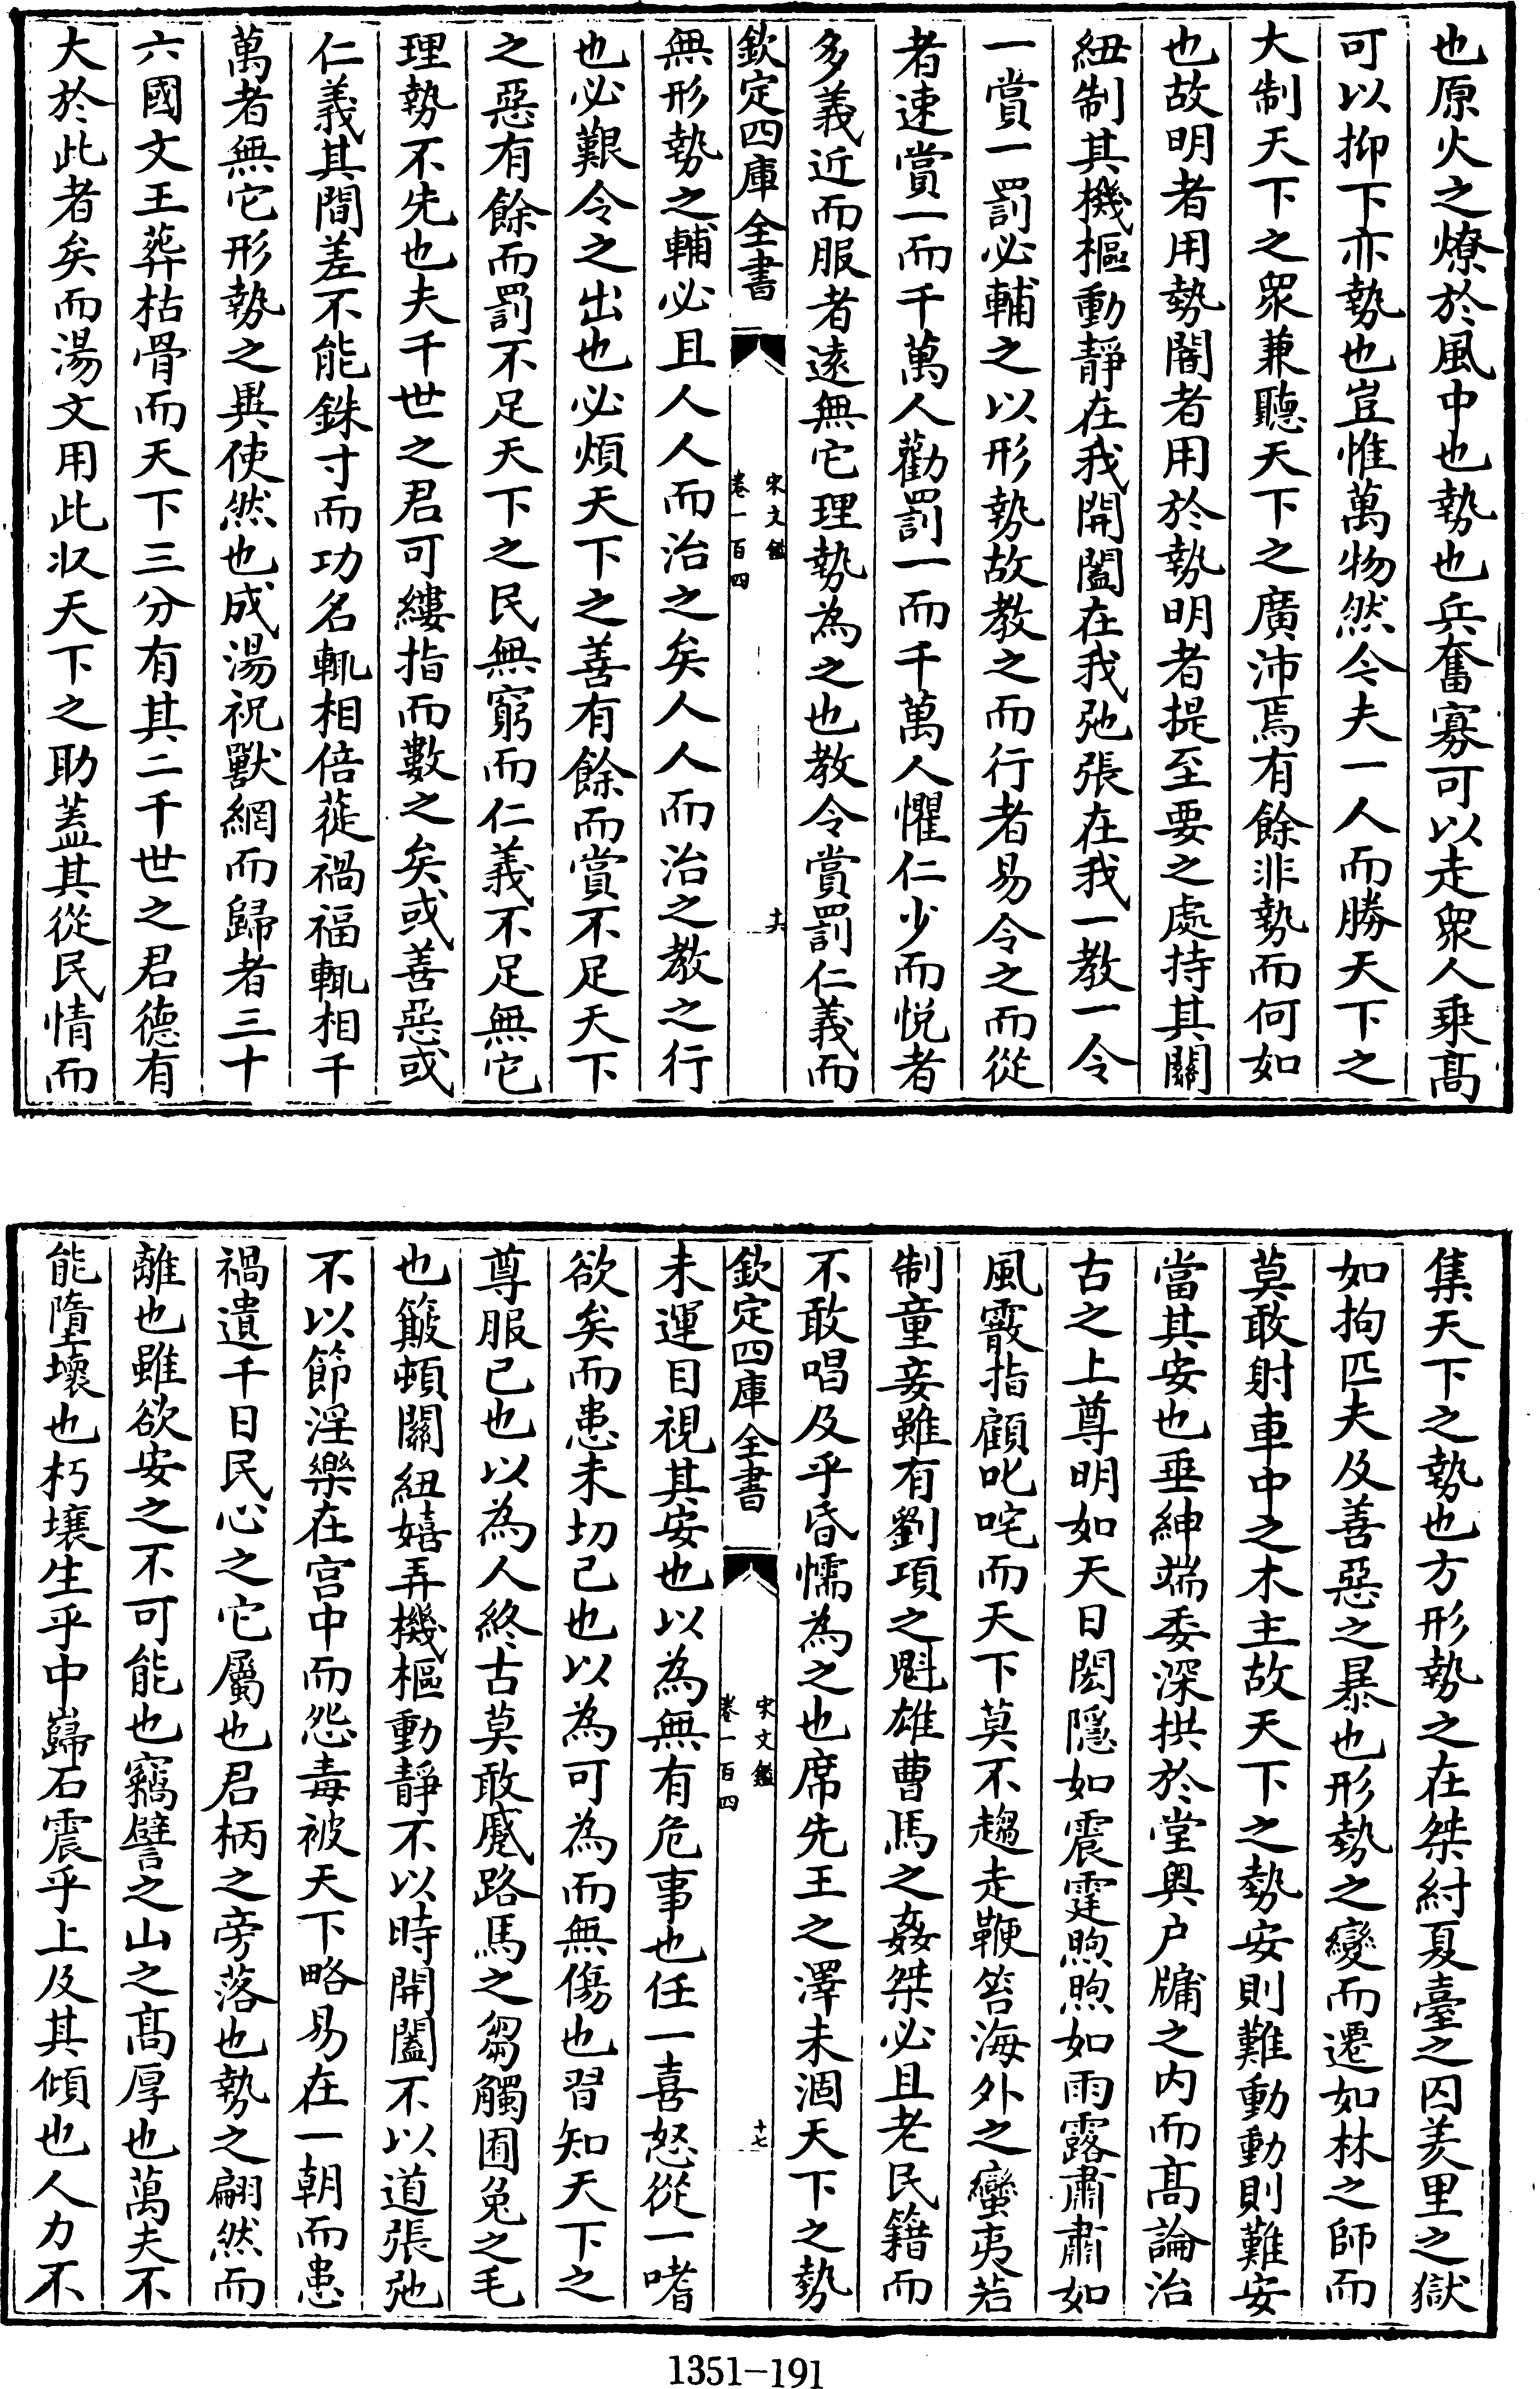 也原火之燎於風中也勢也兵奮寡可以走衆人乗髙
可以抑下亦勢也豈惟萬物然今夫一人而勝天下之
大制天下之衆兼聽天下之廣沛焉有餘非勢而何如
也故明者用勢闇者用於勢明者提至要之處持其關
紐制其機樞動靜在我開闔在我弛張在我一教一令
一賞一罰必輔之以形勢故教之而行者易令之而從
者速賞一而千萬人勸罰一而千萬人懼仁少而悦者
多義近而服者逺無它理勢為之也教令賞罰仁義而
欽定四庫全書
宋文鑑
卷一百四
十六
無形勢之輔必且人人而治之矣人人而治之教之行
也必艱令之出也必煩天下之善有餘而賞不足天下
之惡有餘而罰不足天下之民無窮而仁義不足無它
理勢不先也夫千世之君可縷指而數之矣或善惡或
仁義其間差不能銖寸而功名輒相倍蓰禍福輒相千
萬者無它形勢之異使然也成湯祝獸網而歸者三十
六國文王葬枯骨而天下三分有其二千世之君德有
大於此者矣而湯文用此収天下之助蓋其從民情而
集天下之勢也方形勢之在桀紂夏臺之囚羑里之獄
如拘匹夫及善惡之暴也形勢之變而遷如林之師而
莫敢射車中之木主故天下之勢安則難動動則難安
當其安也垂紳端委深拱於堂奥户牖之内而髙論治
古之上尊明如天日閎隱如震霆煦煦如雨露肅肅如
風霰指顧叱咤而天下莫不趨走鞭笞海外之蠻夷若
制童妾雖有劉項之魁雄曹馬之姦桀必且老民籍而
不敢唱及乎昏懦為之也席先王之澤未涸天下之勢
欽定四庫全書
宋文鑑
卷一百四
十七
未運目視其安也以為無有危事也任一喜怒從一嗜
欲矣而患未切己也以為可為而無傷也習知天下之
尊服己也以為人終古莫敢蹙路馬之芻觸囿兔之毛
也簸頓關紐嬉弄機樞動靜不以時開闔不以道張弛
不以節淫樂在宫中而怨毒被天下略易在一朝而患
禍遺千日民心之它屬也君柄之旁落也勢之翩然而
離也雖欲安之不可能也竊譬之山之髙厚也萬夫不
能墮壞也朽壤生乎中巋石震乎上及其傾也人力不
1351-191